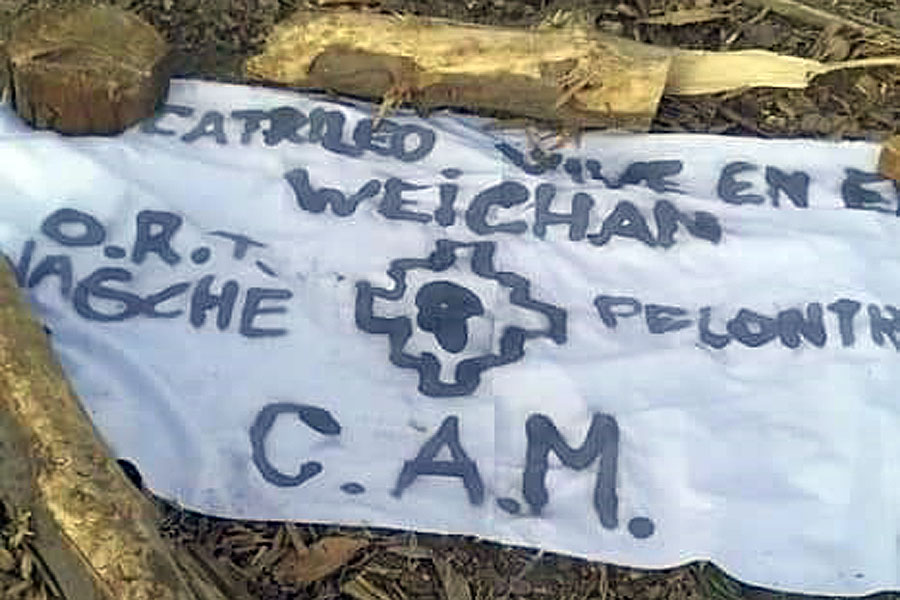 CATRILEO VIVE EN E
WEiCHAN
O.R.T.
NAGCHE
PELONTR
C.A.M.